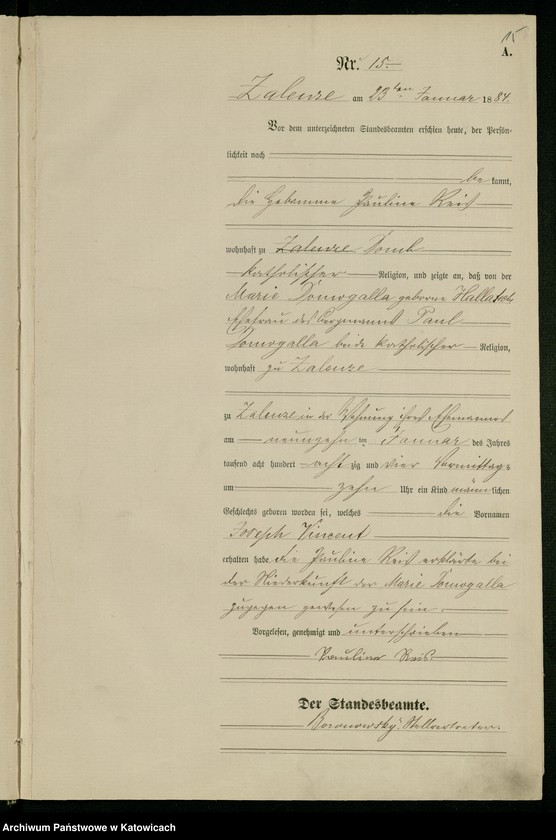 15
A.
Nr. 15.
Zalenze am 23ten Januar 1884.
Vor dem unterzeichneten Standesbeamten erschien heute, der Persön-
lichkeit nach
be kannt,
die Hebamme Pauline Reis
wohnhaft zu Zalenze Domb
katholischer Religion, und zeigte an, daß von der
Marie Domogalla geborne
Ehefrau des Bergmanns Paul
Domogalla beide katholischer Religion,
wohnhaft zu Zalenze
zu Zalenze in der Wohnung ihres Ehemannes
am neunzehn ten Januar des Jahres
tausend acht hundert acht zig und vier Vormittags
um zehn Uhr ein Kind männlichen
Geschlechts geboren worden sei, welches die Vornamen
Joseph Vincent
erhalten habe die Pauline Reis erklärte bei
der Niederkunft der Marie Domogalla
zugegen gewesen zu sein.
Vorgelesen, genehmigt und unterschrieben
Pauline Reis.
Der Standesbeamte.
Stellvertreter.
Archiwum Państwowe w Katowicach